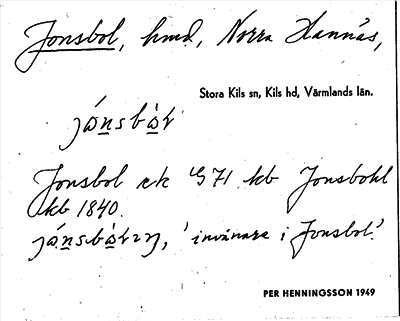 Jonsbol, hmd, Norra Hannäs,
Stora Kils sn, Kils hd, Värmlands län.
Jonsbol ek G71 kb Jonsbohl
kb 1840.
'invånare i Jonsbol'.
PER HENNINGSSON 1949